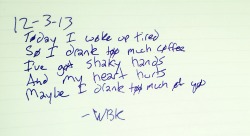 12-3-13
Today I woke up tired
So I drank too much coffee
I've got shaky hands
And my heart hurts
Maybe I drank too much of you
-WBK